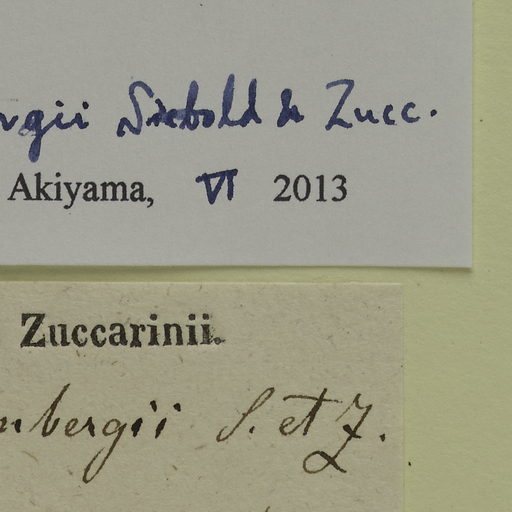 rgii Siebold & Zucc.
Akiyama, VI 2013
Zuccarinii.
nbergii S. et Z.